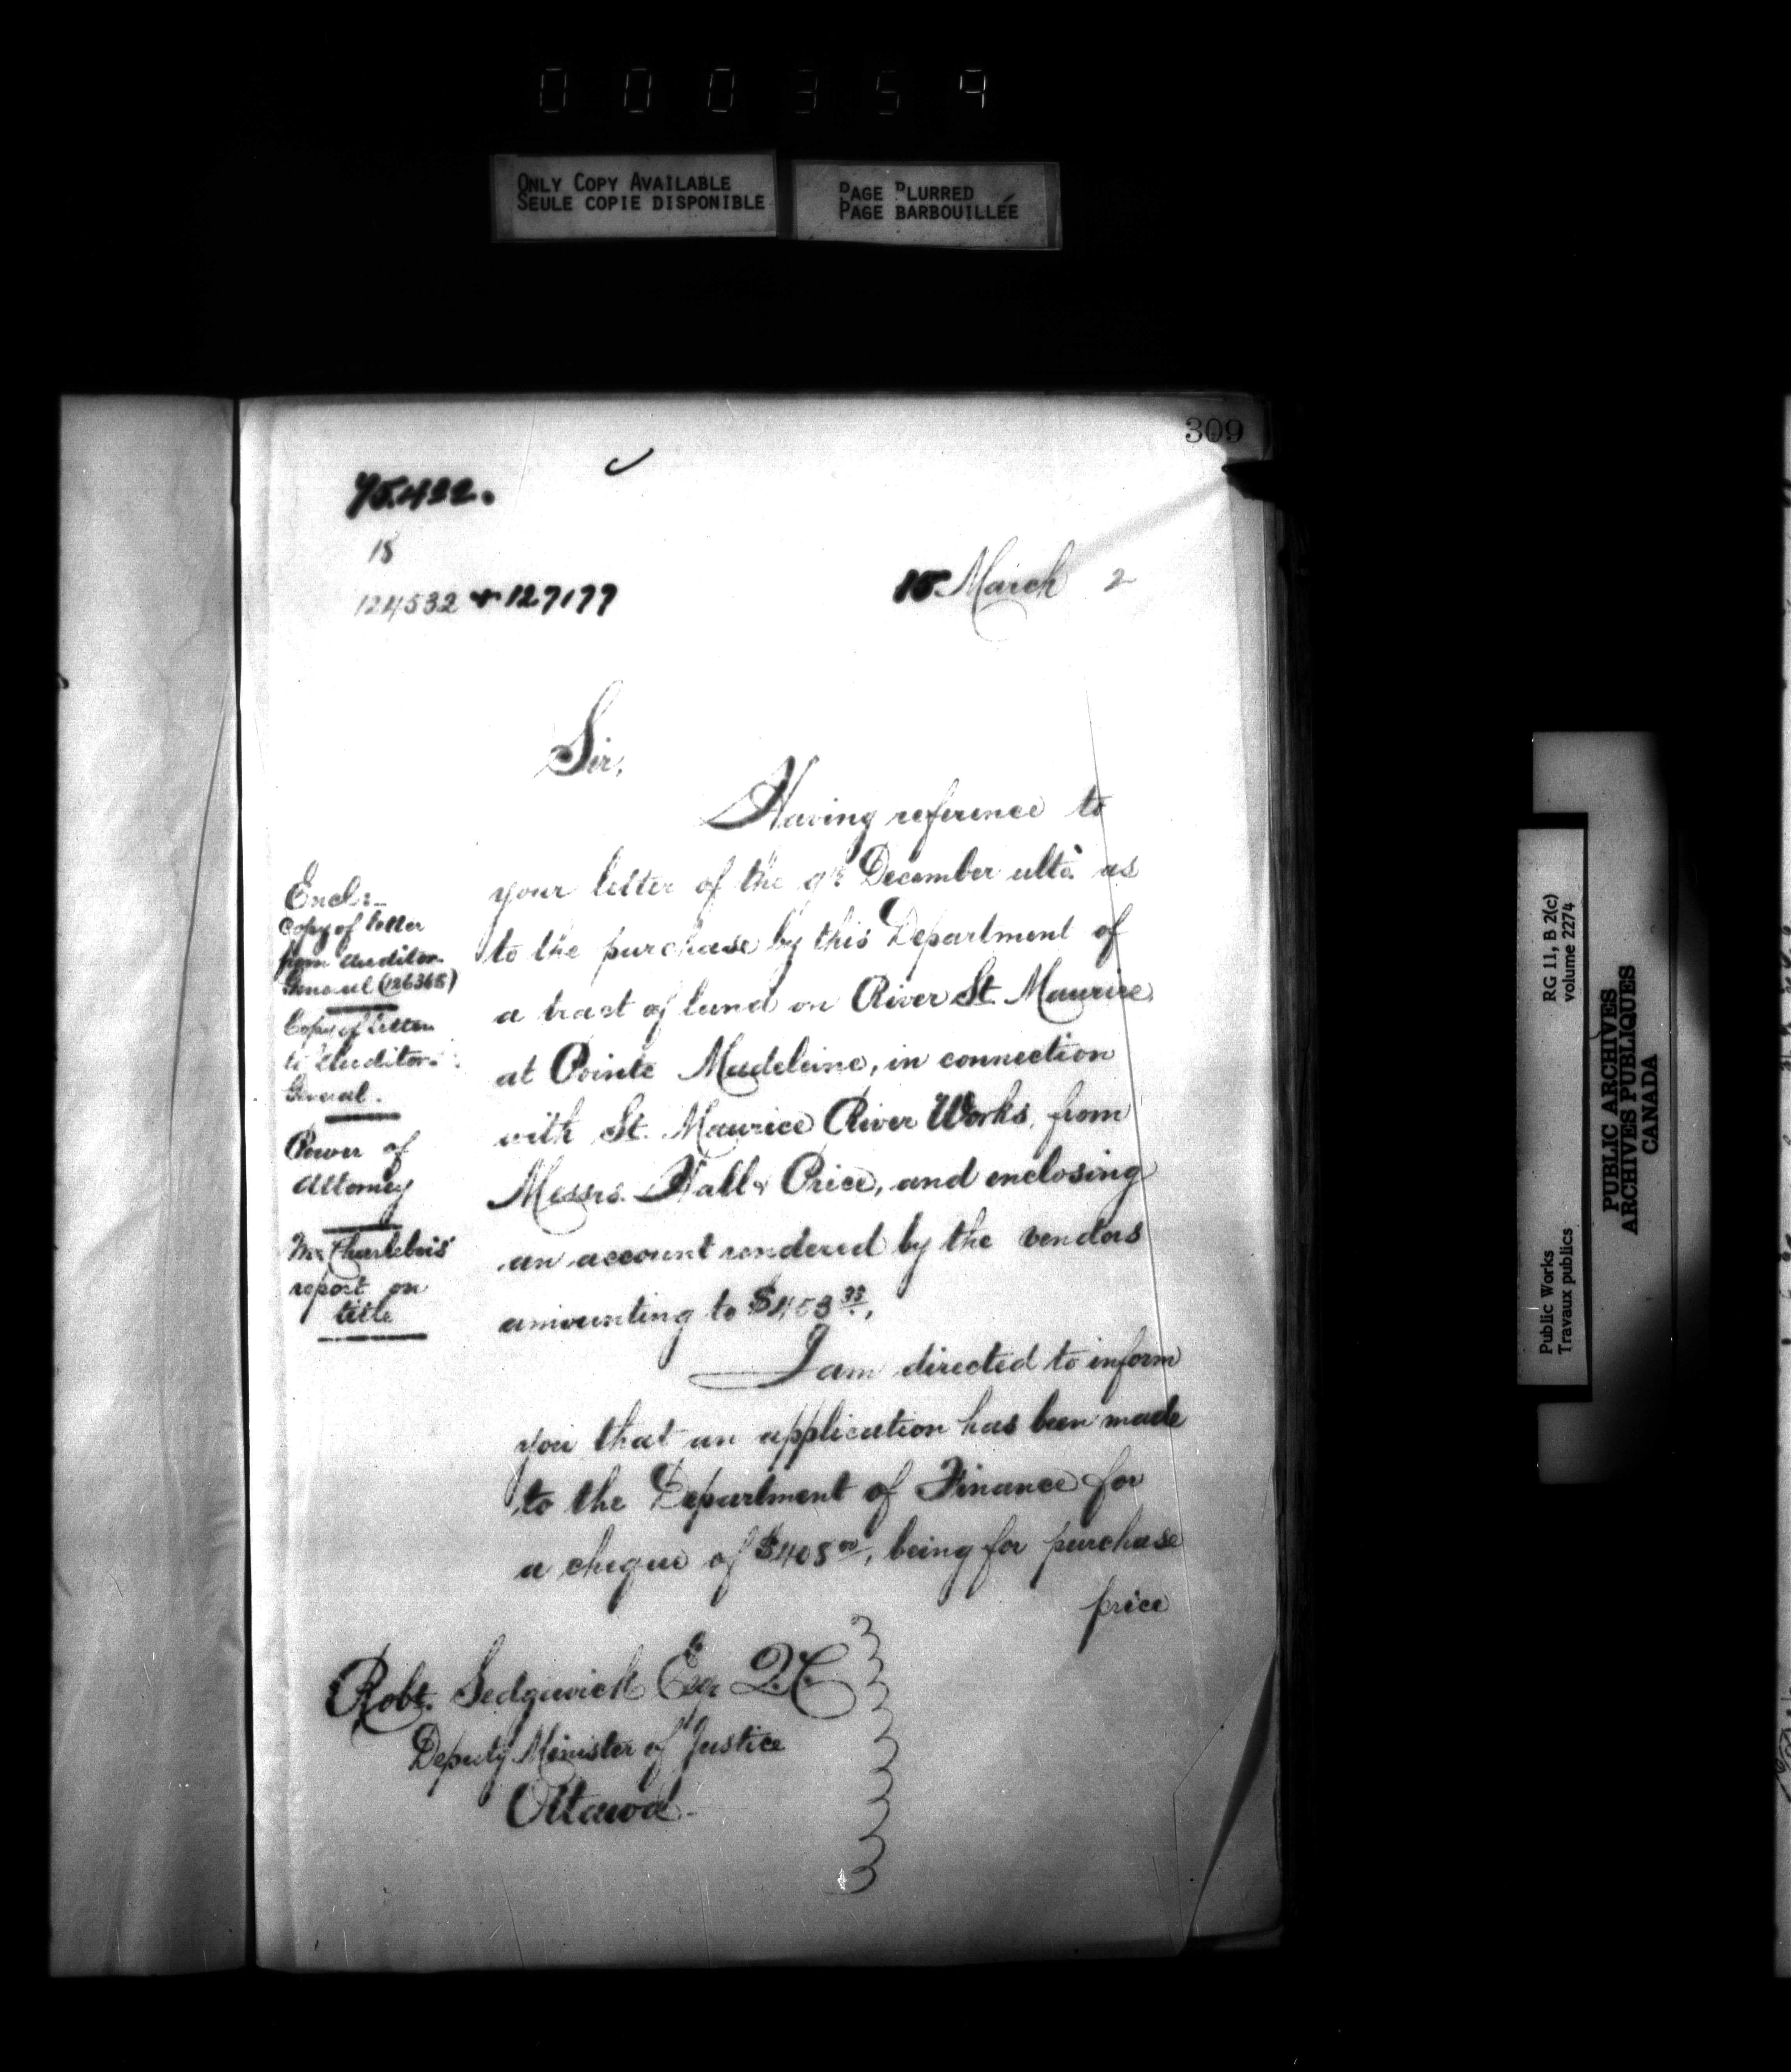 000359
ONLY COPY AVAILABLE
SEULE COPIE DISPONIBLE
PAGE BLURRED
PAGE BARBOUILLÉE
309
124532 + 127177
15 March 2
Sir,
Having reference to
your letter of the 9th December ulto. as
to the purchase by this Department of
a tract of land on River St. Maurice,
at Pointe Madeleine, in connection
with St. Maurice River Works, from
Messrs. Hall & Price, and enclosing
an account rendered by the vendors
amounting to
I am directed to inform
you that an application has been made
to the Department of Finance for
a cheque of $408 00, being for purchase
price
Encls:-
Copy of letter
from Auditor-
General (126365)
Copy of letter
to Auditor-
General.
Power of
Attorney
Mr Charlebois'
report on
title
Robt. Sedgewick Esqr Q.C.
Deputy Minister of Justice
Ottawa-
Public Works
Travaux publics
RG 11, B 2(c)
volume 2274
PUBLIC ARCHIVES
ARCHIVES PUBLIQUES
CANADA